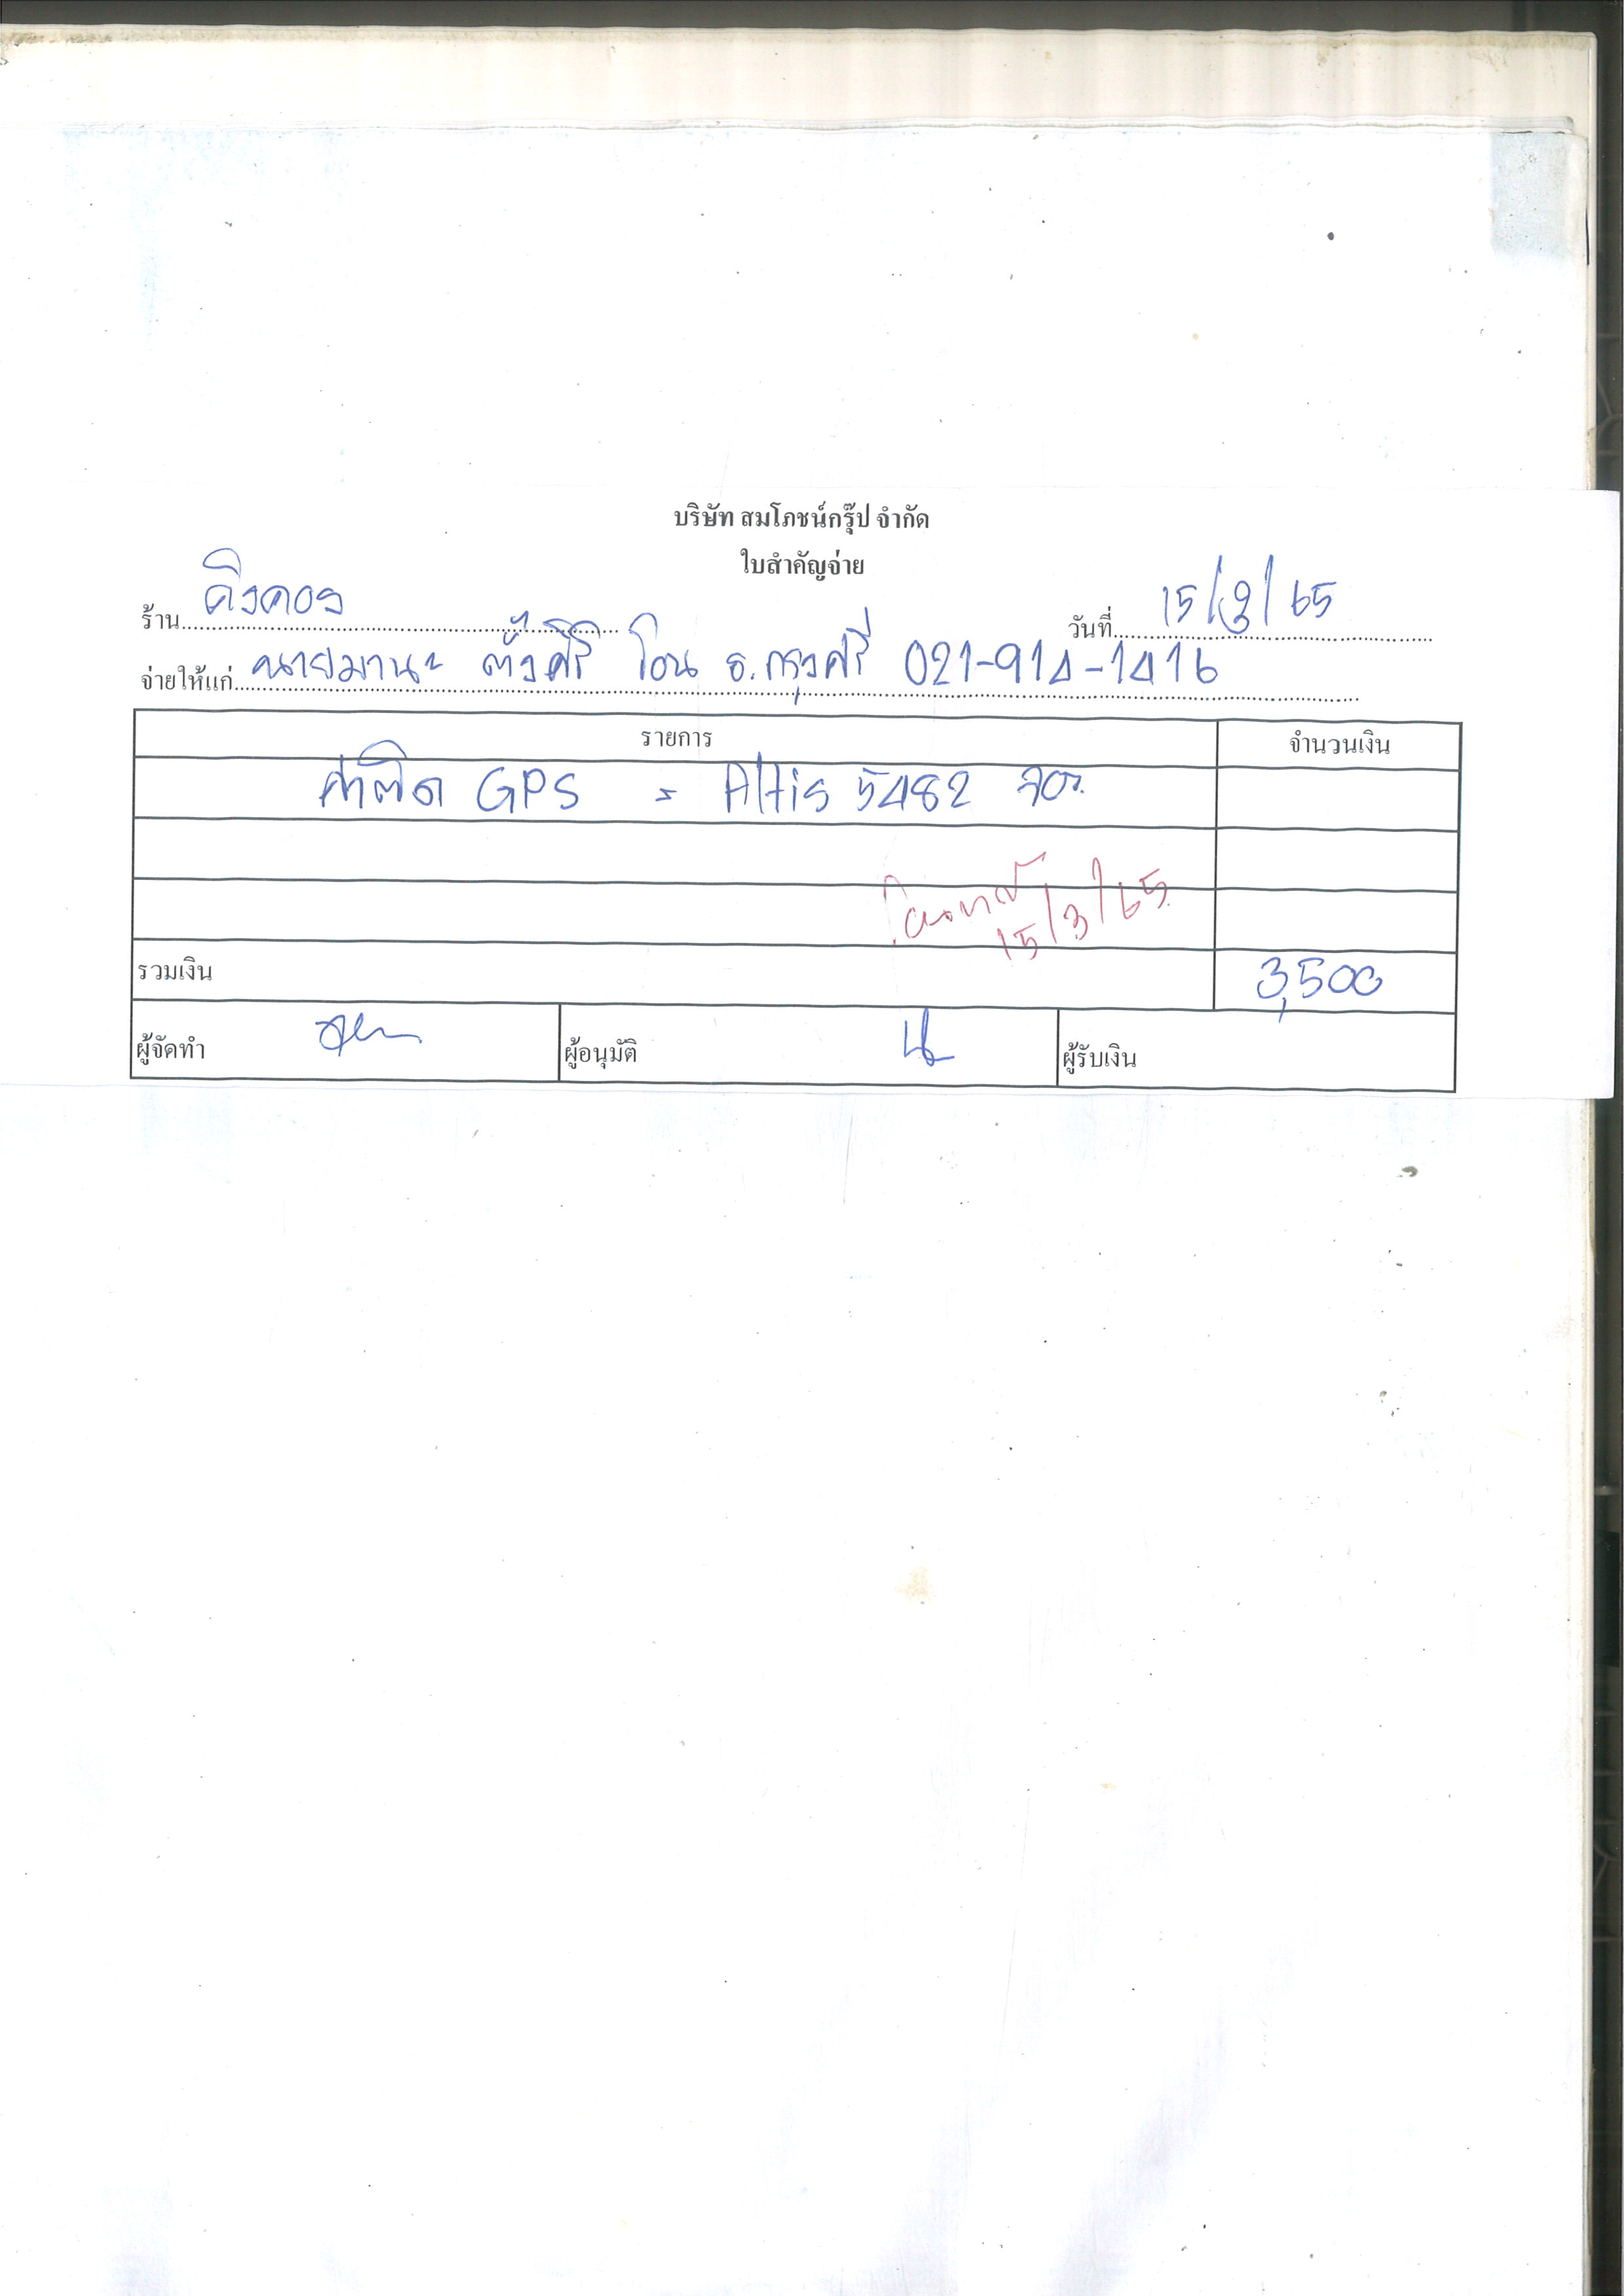 บริษัท สมโภชน์กรุ๊ป จำกัด
ใบสำคัญจ่าย
ร้าน คิงคอง วันที่ 15/3/65
จ่ายให้แก่ นายมานะ ตั้งศิริ โอน ธ.กรุงศรี 021-914-1416
รายการ จำนวนเงิน
ค่าติด GPS = Altis 5482
15/3/65
รวมเงิน 3,500
ผู้จัดทำ ผู้อนุมัติ ผู้รับเงิน